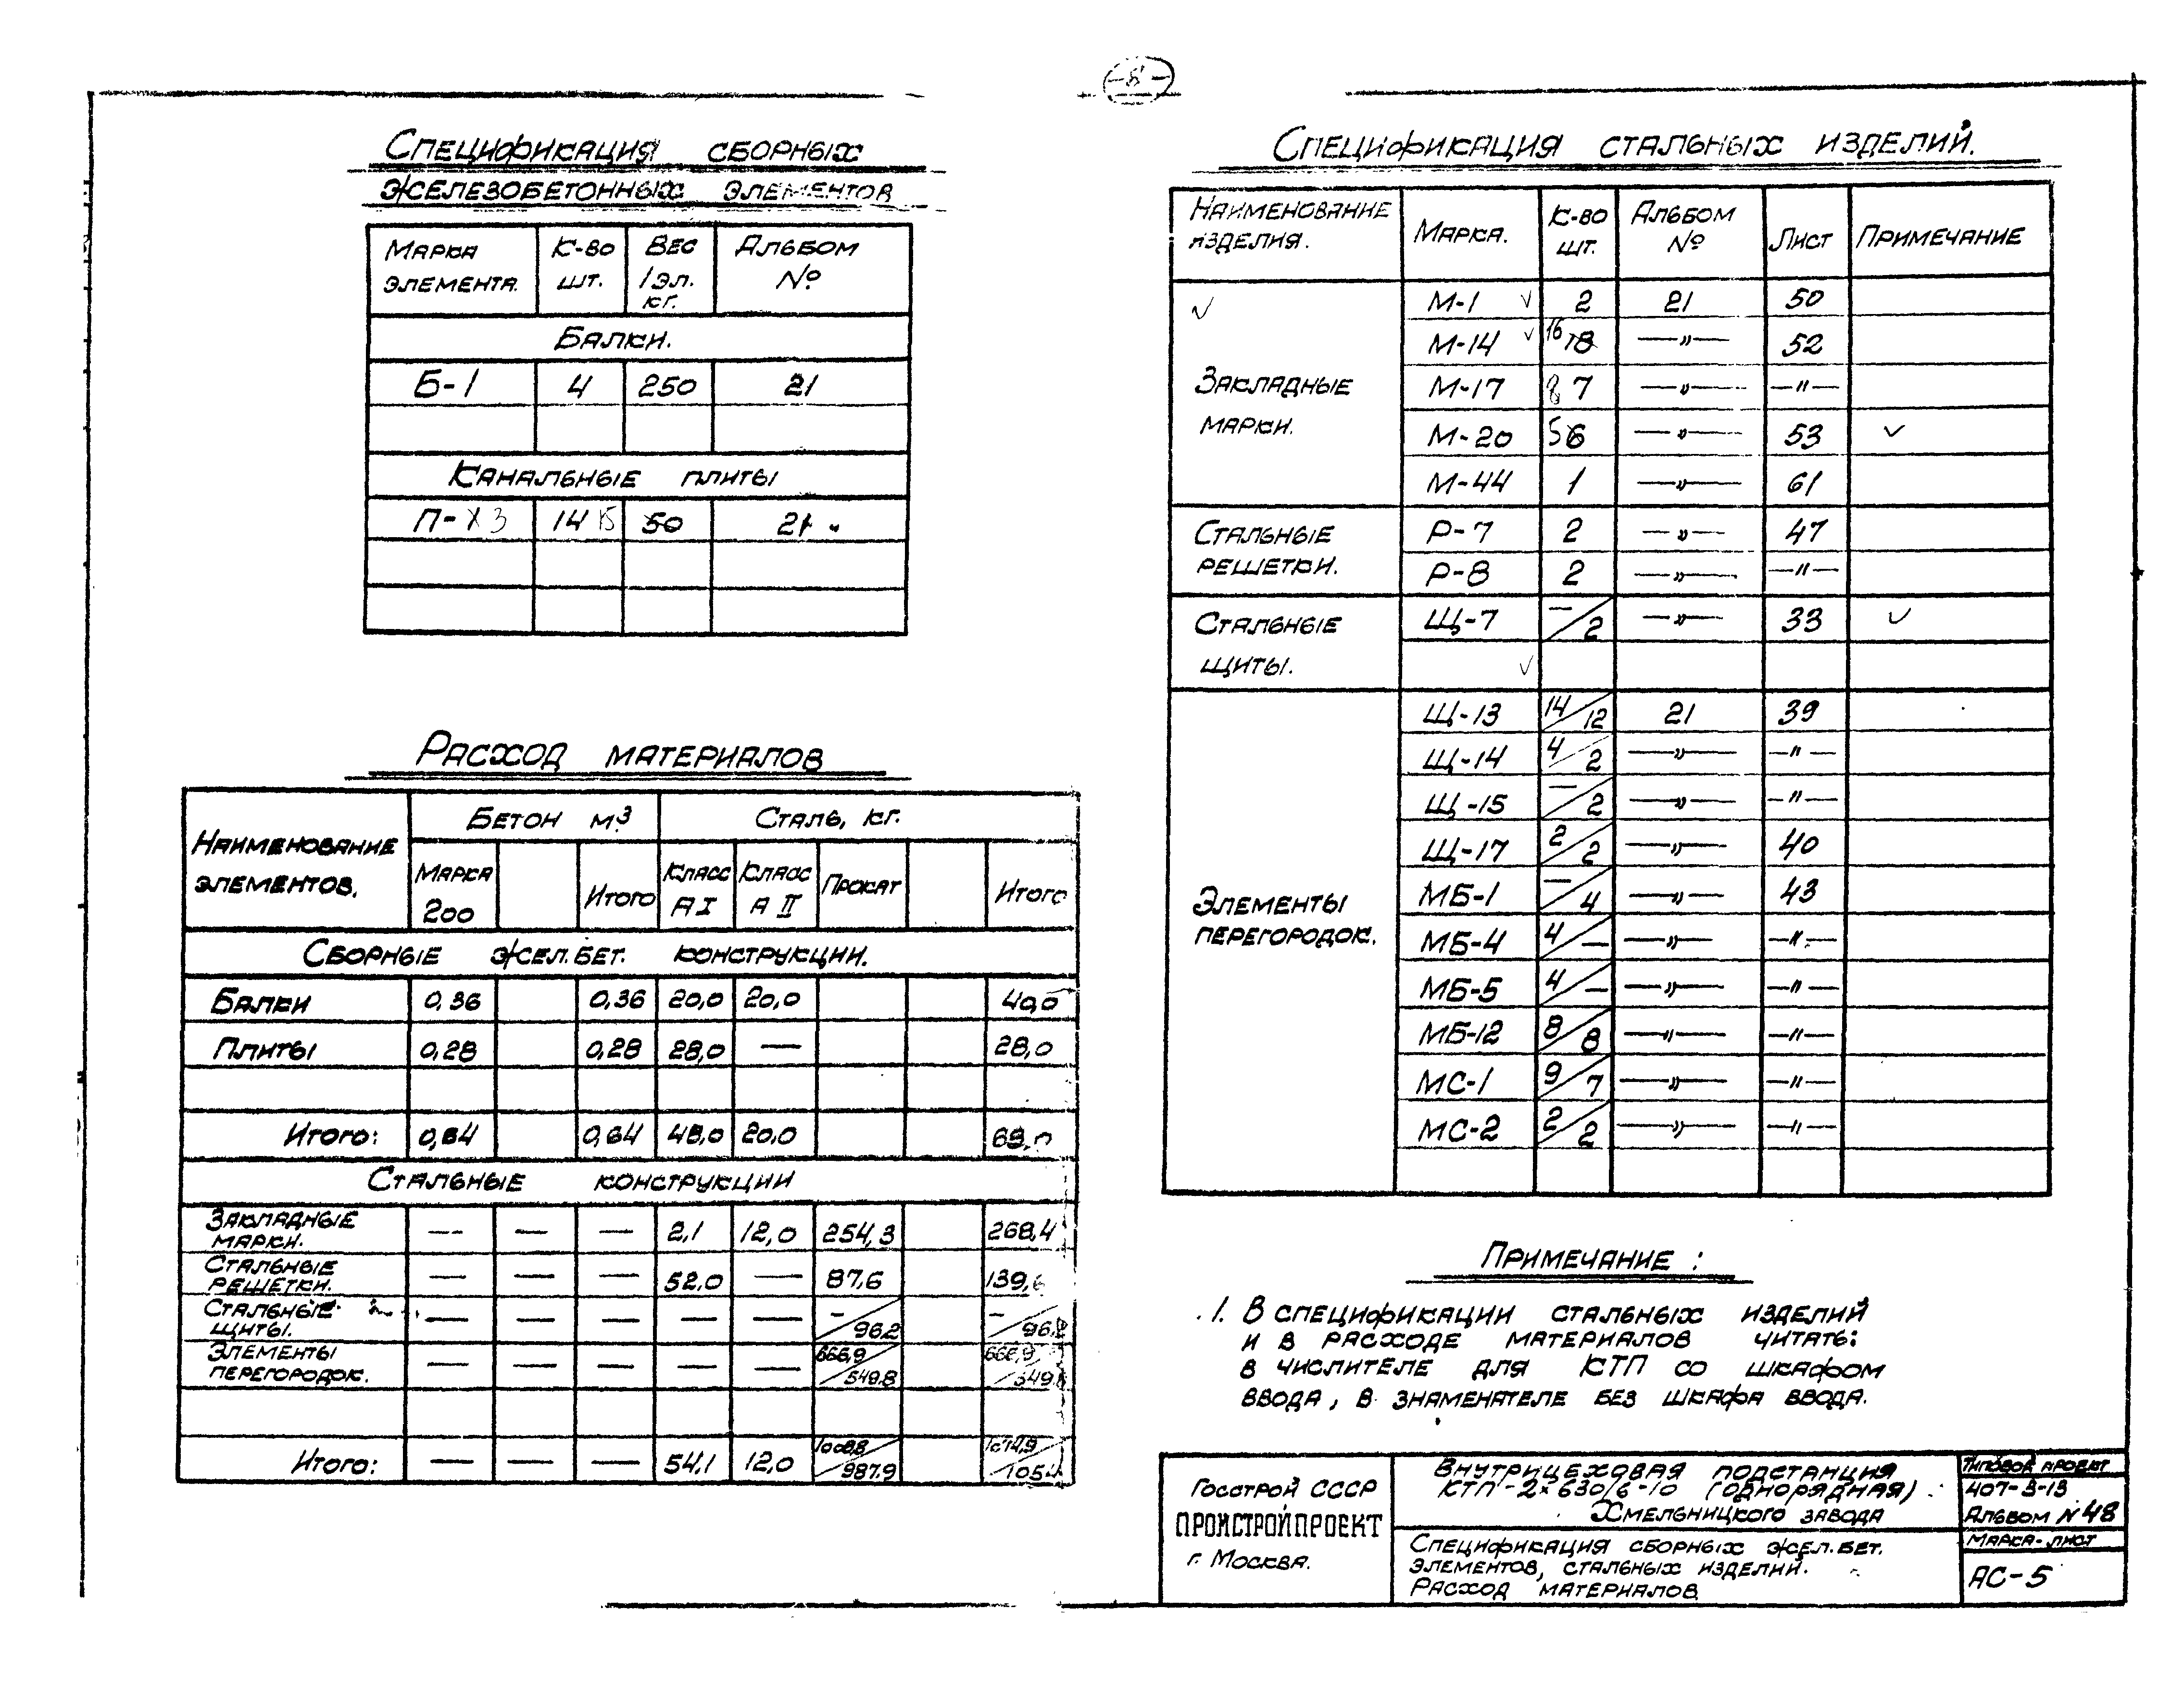 -8-
Спецификация сборных
железобетонных элементов
Марка элемента. | К-во шт. | Вес 1 эл. кг. | Альбом №
Балки.
Б-1 | 4 | 250 | 21
Канальные плиты
П- х 3 | 14 15 | 50 | 21 "
Расход материалов
Наименование элементов. | Бетон м³ | Сталь, кг.
Марка 200 | Итого | Класс А I | Класс А II | Прокат | Итого
Сборные жел.бет. конструкции.
Балки | 0,36 | 0,36 | 20,0 | 20,0 | 40,0
Плиты | 0,28 | 0,28 | 28,0 | — | 28,0
Итого: | 0,64 | 0,64 | 48,0 | 20,0 | 68,0
Стальные конструкции
Закладные марки. | — | — | — | 2,1 | 12,0 | 254,3 | 268,4
Стальные решетки. | — | — | — | 52,0 | — | 87,6 | 139,6
Стальные щиты. | — | — | — | — | — | -/96,2 | -/96,2
Элементы перегородок. | — | — | — | — | — | 666,9/549,8 | 666,9/549,8
Итого: | — | — | — | 54,1 | 12,0 | 1008,8/987,9 | 1074,9/1054
Спецификация стальных изделий.
Наименование изделия. | Марка. | К-во шт. | Альбом № | Лист | Примечание
Закладные марки.
М-1 | 2 | 21 | 50
М-14 | 16 18 | —"— | 52
М-17 | 8 7 | —"— | —"—
М-20 | 5 6 | —"— | 53
М-44 | 1 | —"— | 61
Стальные решетки.
Р-7 | 2 | —"— | 47
Р-8 | 2 | —"— | —"—
Стальные щиты.
Щ-7 | —/2 | —"— | 33
Элементы перегородок.
Щ-13 | 14/12 | 21 | 39
Щ-14 | 4/2 | —"— | —"—
Щ-15 | —/2 | —"— | —"—
Щ-17 | 2/2 | —"— | 40
МБ-1 | —/4 | —"— | 43
МБ-4 | 4/— | —"— | —"—
МБ-5 | 4/— | —"— | —"—
МБ-12 | 8/8 | —"— | —"—
МС-1 | 9/7 | —"— | —"—
МС-2 | 2/2 | —"— | —"—
Примечание :
1. В спецификации стальных изделий
и в расходе материалов читать:
в числителе для КТП со шкафом
ввода, в знаменателе без шкафа ввода.
Госстрой СССР
ПРОМСТРОЙПРОЕКТ
г. Москва.
Внутрицеховая подстанция
КТП-2×630/6-10 (однорядная)
Хмельницкого завода
Спецификация сборных жел.бет.
элементов, стальных изделий.
Расход материалов
Типовой проект
407-3-13
Альбом № 48
Марка-лист
АС-5